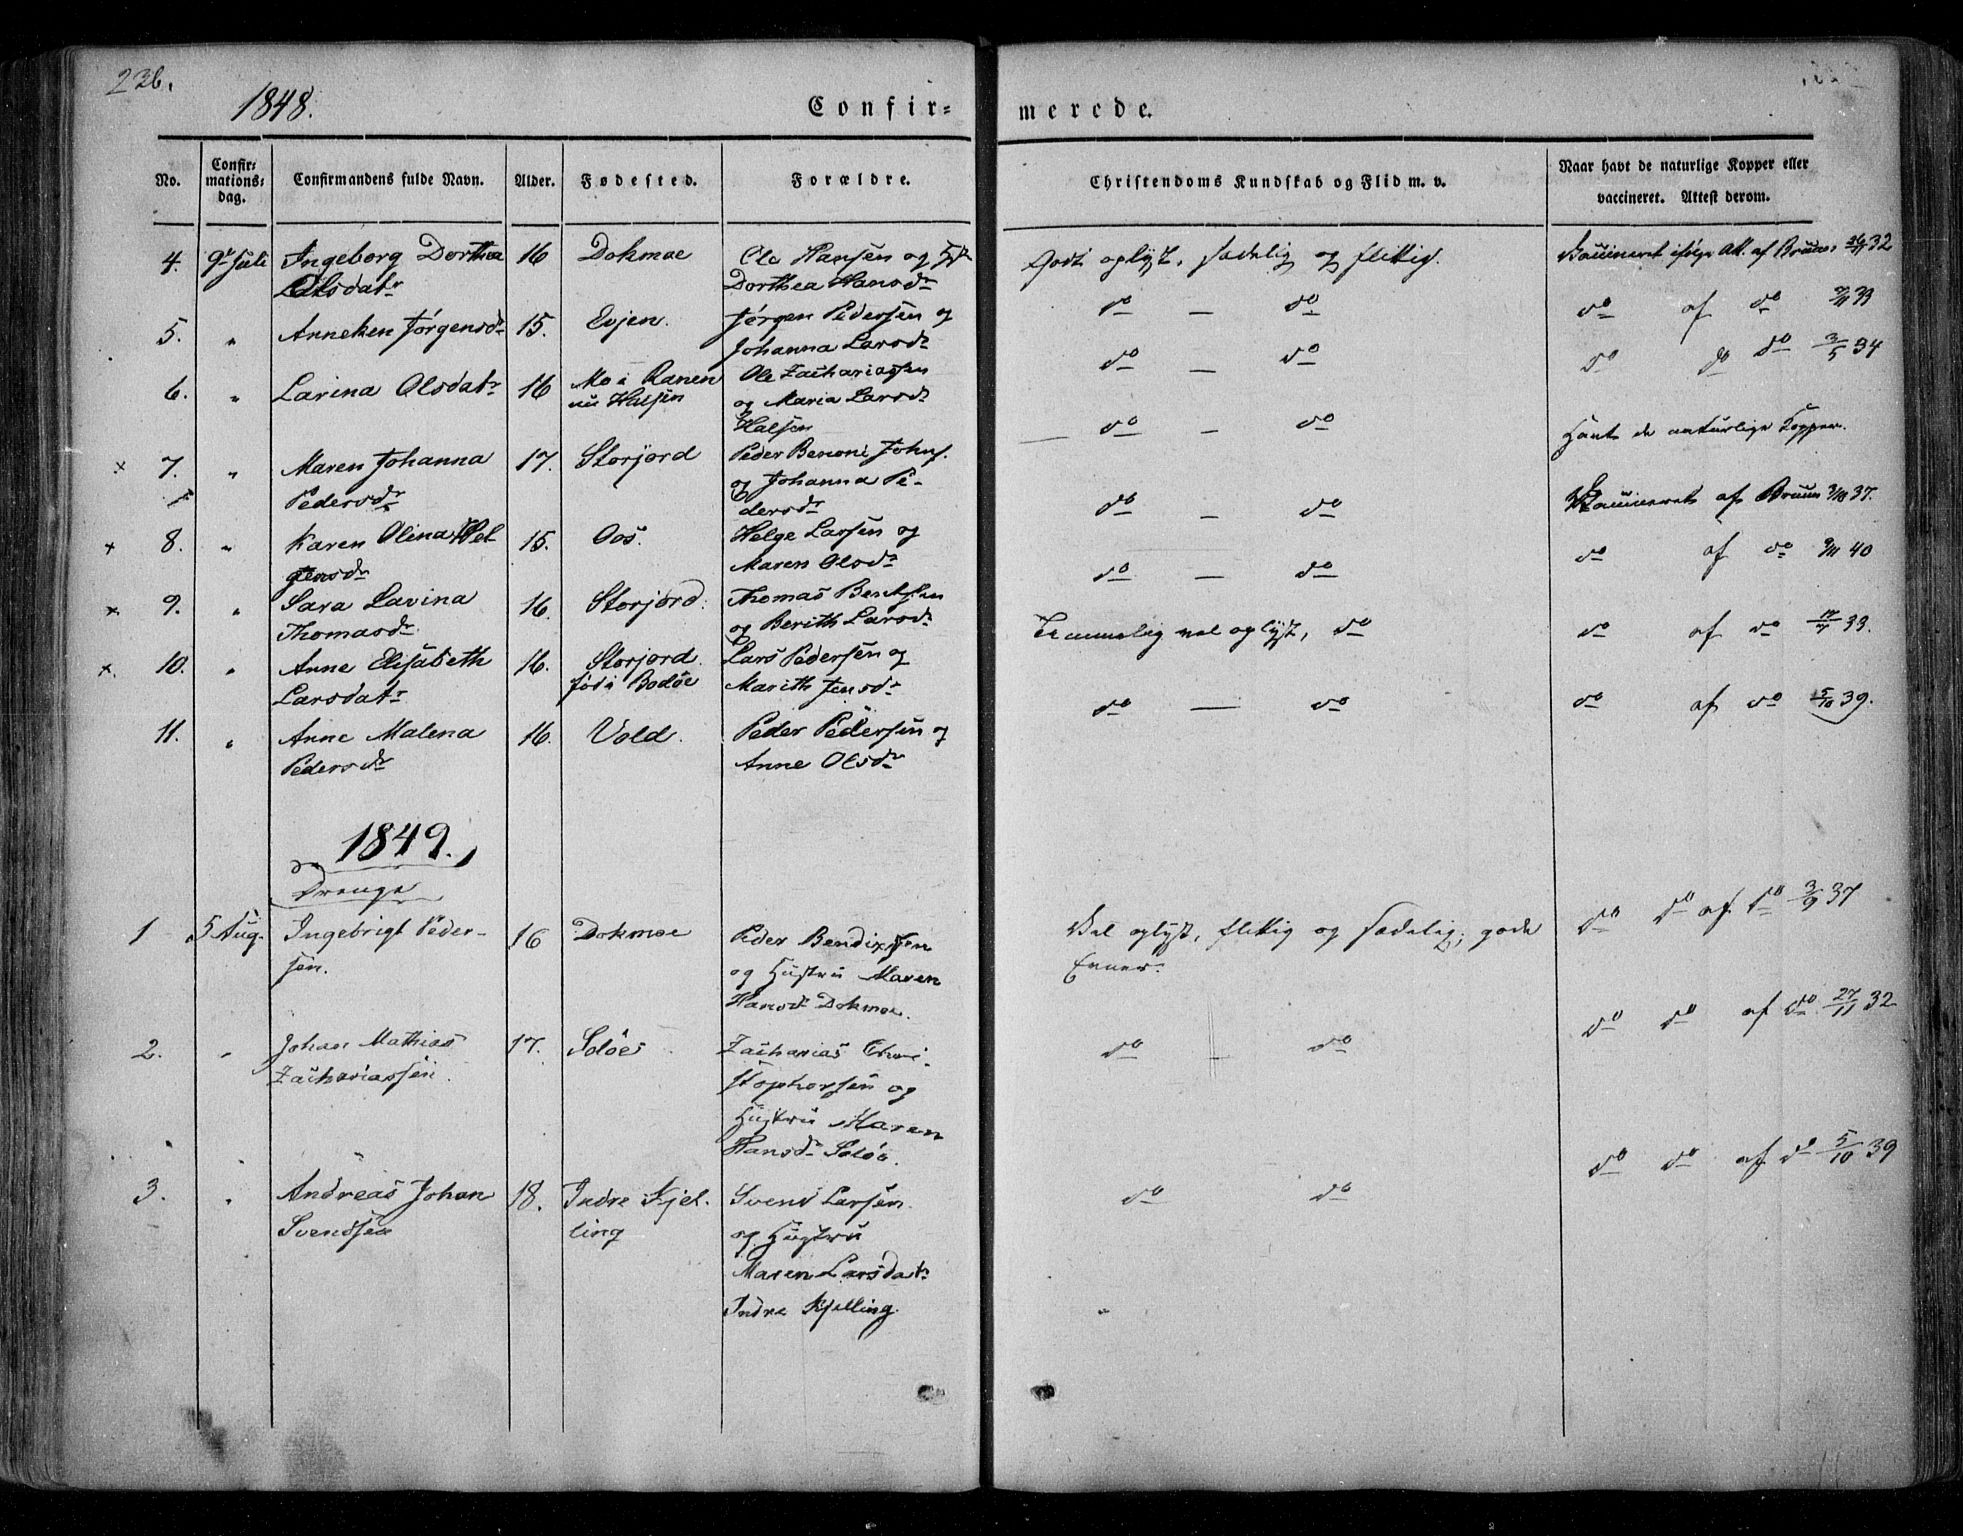 236.
1848.
Confir=
merede.
No.
Confir= mations= dag.
Confirmandens fulde Navn.
Alder.
Fødested.
Forældre.
Christendoms Kundskab og Flid m. v.
Naar havt de naturlige Kopper eller vaccineret. Attest derom.
4. 9de Juli Ingeborg Dorthea 16 Dokmoe Ole Hansen og
Olsdatr Dorthea Hansdr
Godt oplyst, sædelig og flittig.
Vaccineret ifølge Att. af Bruun 32
5. " Anneken Jørgensdr 15. Evjen. Jørgen Pedersen og
Johanna Larsdr
do — do
do af do 33
6. " Larina Olsdatr 16 Mo i Ranen Ole Zachariassen
nu Halsen og Maria Larsdr
Halsen
do — do
do do 3/5 34
x 7. " Maren Johanna 17. Storjord Peder Benoni Johns.
Pedersdr og Johanna Pe-
dersdr
do — do
Havt de naturlige Kopper.
x 8. " Karen Olina Hel 15. Oos. Helge Larsen og
gesdr Maren Olsdr
do — do
Vaccineret af Bruun 37.
x 9. " Sara Lavina 16. Storjord. Thomas Bentsen
Thomasdr og Berith Larsdr
do — do
do af do 40
x. 10. " Anne Elisabeth 16. Storjord. Lars Pedersen og
Larsdatr fød i Bodøe Marith Jensdr
Temmelig vel oplyst, do
do af do 33.
11. " Anne Malena 16. Vold. Peder Pedersen og
Pedersdr Anne Olsdr
do — do
do af do 5/10 39.
1849.
Drenge
1 5 Aug. Ingebrigt Peder- 16 Dokmoe Peder Bendixsen
sen. og Hustru Maren
Hansdr Dokmoe.
Vel oplyst, flittig og sædelig; gode
Evner.
do do af do 3/9 37
2. " Johan Mathias 17. Soløe Zacharias Chri-
Zachariassen. stophersen og
Hustru Maren
Hansdr Soløe.
do — do
do do af do 27/11 32
3. " Andreas Johan 18. Indre Kjel- Svend Larsen
Svendsen ling og Hustru
Maren Larsdatr
Indre Kjelling.
do do
do do af do 5/10 39